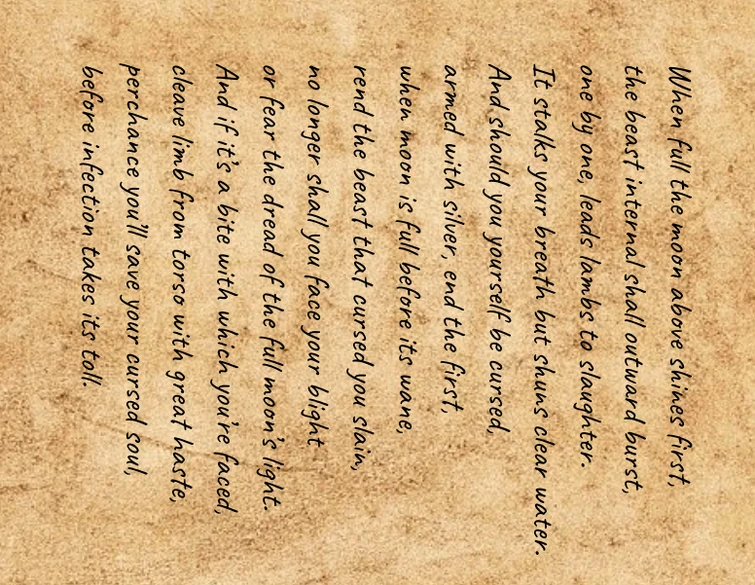 When full the moon above shines first,
the beast internal shall outward burst,
one by one, leads lambs to slaughter.
It stalks your breath but shuns clear water.
And should you yourself be cursed,
armed with silver, end the first,
when moon is full before its wane,
rend the beast that cursed you slain,
no longer shall you face your blight
or fear the dread of the full moon's light.
And if it's a bite with which you're faced,
cleave limb from torso with great haste,
perchance you'll save your cursed soul,
before infection takes its toll.